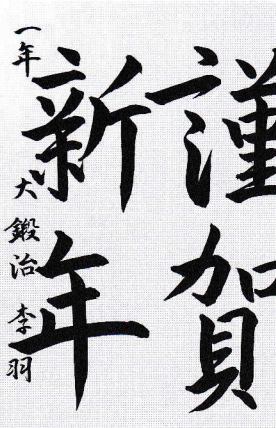 謹賀
新年
一年 大鍛治 李羽